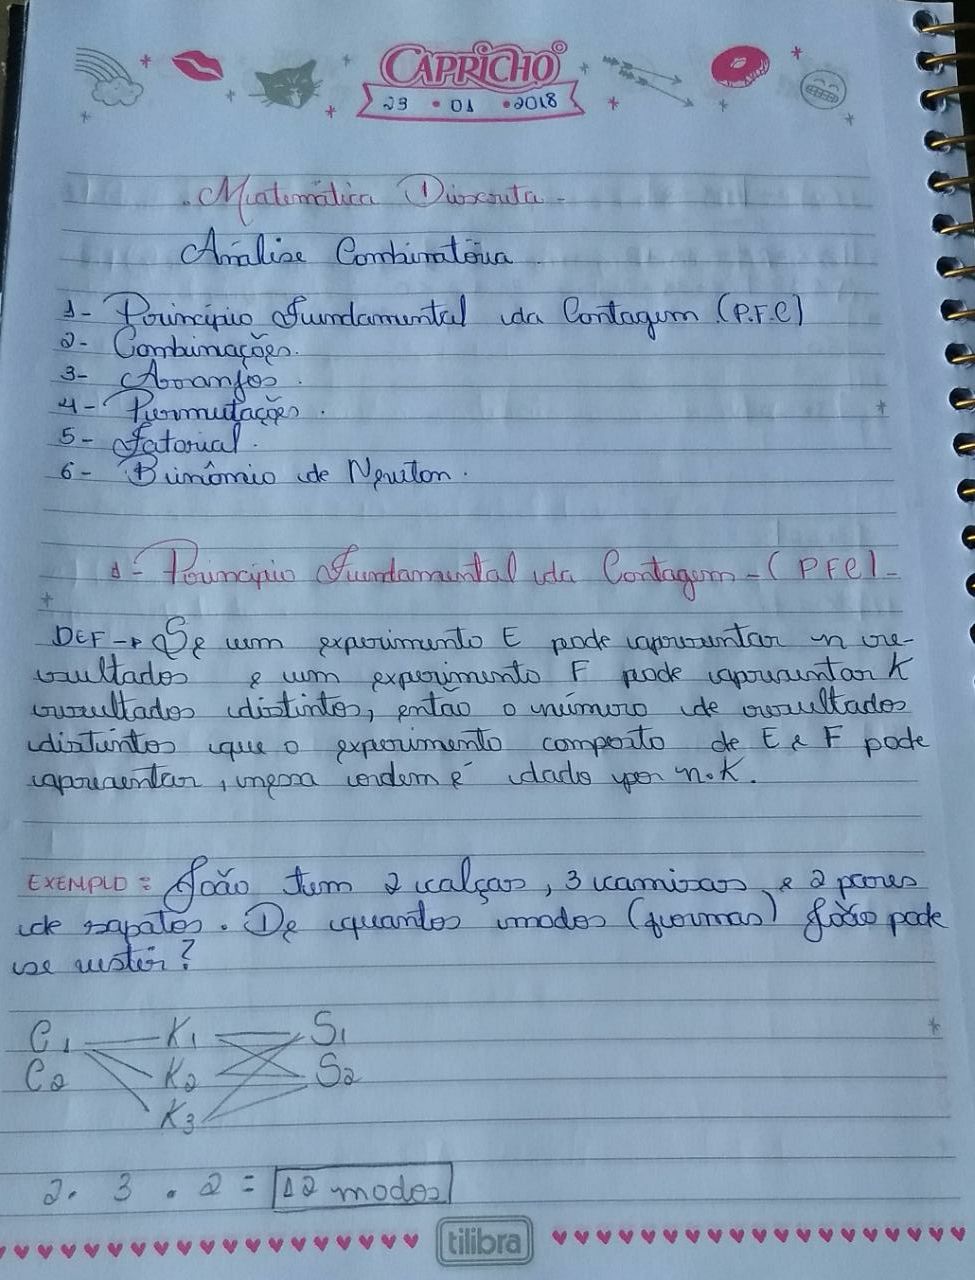 CAPRICHO
23 • 01 • 2018
. Matemática Discreta -
Análise Combinatória.
1- Princípio Fundamental da Contagem (P.F.C)
2- Combinações.
3- Arranjos.
4- Permutações.
5- Fatorial.
6- Binômio de Newton.
1- Princípio Fundamental da Contagem - (PFC) -
DEF → Se um experimento E pode apresentar n re-
sultados e um experimento F pode apresentar K
resultados distintos, então o número de resultados
distintos que o experimento composto de E e F pode
apresentar, nessa ordem é dado por n.K.
EXEMPLO: João tem 2 calças, 3 camisas e 2 pares
de sapatos. De quantos modos (formas) João pode
se vestir?
C1 K1 S1
C2 K2 S2
K3
2. 3 . 2 = 12 modos
tilibra